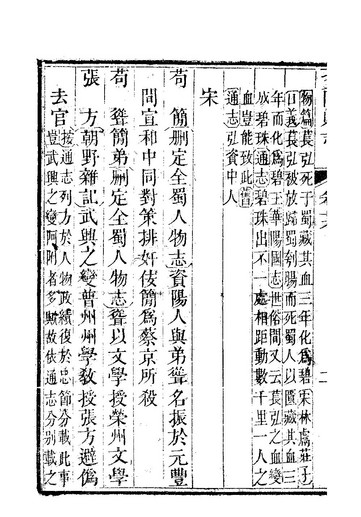 物篇萇弘死于蜀藏其血三年化爲碧宋林虙莊子
口義萇弘被放歸蜀刳腸而死蜀人以匱藏其血三
年而化爲碧玉華陽國志世俗間又云萇弘之血變
成碧珠通志碧珠出不一處相距動數千里一人之
血豈能致此舊
通志弘資中人
宋
苟　簡刪定全蜀人物志資陽人與弟聳名振於元豐
間宣和中同對策排奸佞簡爲蔡京所殺
苟　聳簡弟刪定全蜀人物志聳以文學授榮州文學
張　方朝野雜記武興之變普州州學敎授張方避僞
去官
按通志列方於人物政績復於忠節分載此事
豈武興之變阿附者多故依通志分別載之